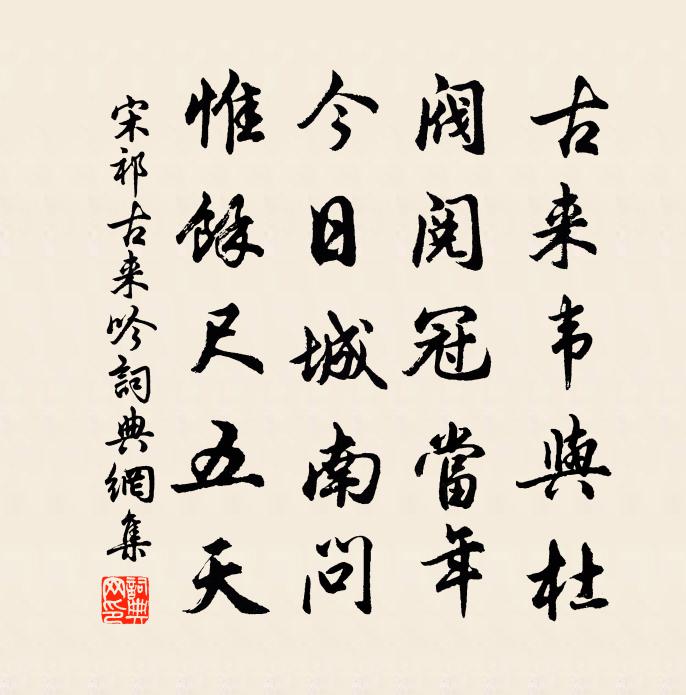 古来韦與杜
阀阅冠當年
今日城南問
惟餘尺五天
宋祁古来吟詞典網集
詞典網印